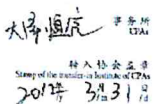 大泽恒信 事务所
CPAs
转入协会盖章
Stamp of the transfer-in Institute of CPAs
2012年3月31日